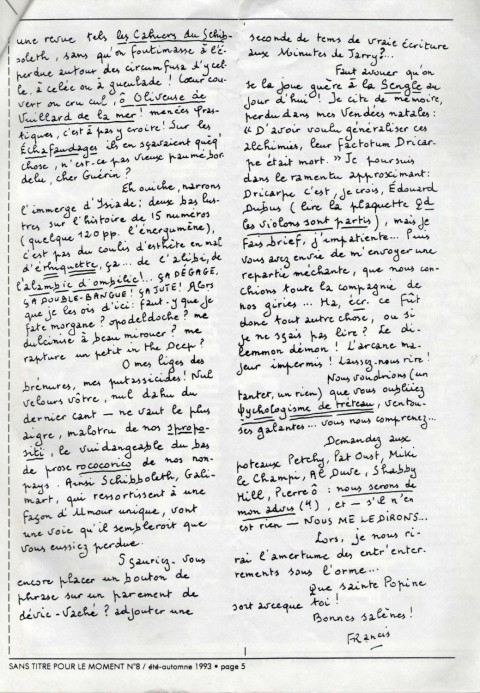 une revue tels les Cahiers du Schib-
soleth, sans qu'on foutimasse à l'é-
perdue autour des circumfusa d'ycel-
le, à celée ou à gueulade ! Cœur cou-
vert ou cru cul, ô Oliveuse de
Vuillard de la mer ! menées fras-
tiques, c'est à pas y croire ! Sur les
Échafaudages ils en sçavaient quéq'
chose, n'est-ce pas vieux paumé bor-
delu, cher Guérin ?
Eh ouiche, narrons
l'immerge d'Ysiade : deux bas lus-
tres sur l'histoire de 15 numéros
(quelque 120 pp. l'énergumène),
c'est pas du coulis d'esthète en mal
d'érhuguette, ça... de l'alibi, de
l'alambic d'ombilic !.. ÇA DÉGAGE,
ÇA DOUBLE-BANGUE ! ÇA JUTE ! Alors
que je les ois d'ici : faut-y que je
fate morgane ? opodeldoche ? me
dulcinise à beau mirouer ? me
rapture un petit in the Deep ?
O mes liges des
brénures, mes putassicides ! Nul
velours vôtre, nul dahu du
dernier cant — ne vaut le plus
aigre, malotru de nos spropo-
siti, le vuidangeable du bas
de prose rococorico de nos non-
pays. Ainsi Schibboleth, Gali-
mart, qui ressortissent à une
façon d'Umour unique, vont
une voie qu'il sembleroit que
vous eussiez perdue.
Sçauriez-vous
encore placer un bouton de
phrase sur un parement de
dévic-vaché ? adjouter une
seconde de tems de vraie écriture
aux Minutes de Jarry ?...
Faut avouer qu'on
se la joue guère à la Sengle au
jour d'hui ! Je cite de mémoire,
perdu dans mes Vendées natales :
« D'avoir voulu généraliser ces
alchimies, leur factotum Dricar-
pe était mort. » Je poursuis
dans le ramentu approximant :
Dricarpe c'est, je crois, Édouard
Dubus (lire la plaquette Qd
les violons sont partis), mais je
fais brief, j'impatiente... Puis
vous avez envie de m'envoyer une
repartie méchante, que nous con-
chions toute la compagnie de
nos giries... Ha, écr. ce fût
donc tout autre chose, ou si
je ne sçais pas lire ? Le di-
lemmon démon ! L'arcane ma-
jeur impermis ! Laissez-nous rire !
Nous voudrions (un
tantet, un rien) que vous oubliiez
ψychologisme de tréteau, ventou-
ses galantes... vous nous comprenez...
Demandez aux
poteaux Petchy, Pat Oust, Miki
le Champi, Al Duve, Shabby
Hill, Pierre ô : nous serons de
mon advis ("), et — s'il n'en
est rien — NOUS ME LE DIRONS...
Lors, je nous ri-
rai l'amertume des entr'enter-
rements sous l'orme...
Que sainte Popine
soit avecque toi !
Bonnes salènes !
Francis
SANS TITRE POUR LE MOMENT N°8 / été-automne 1993 • page 5